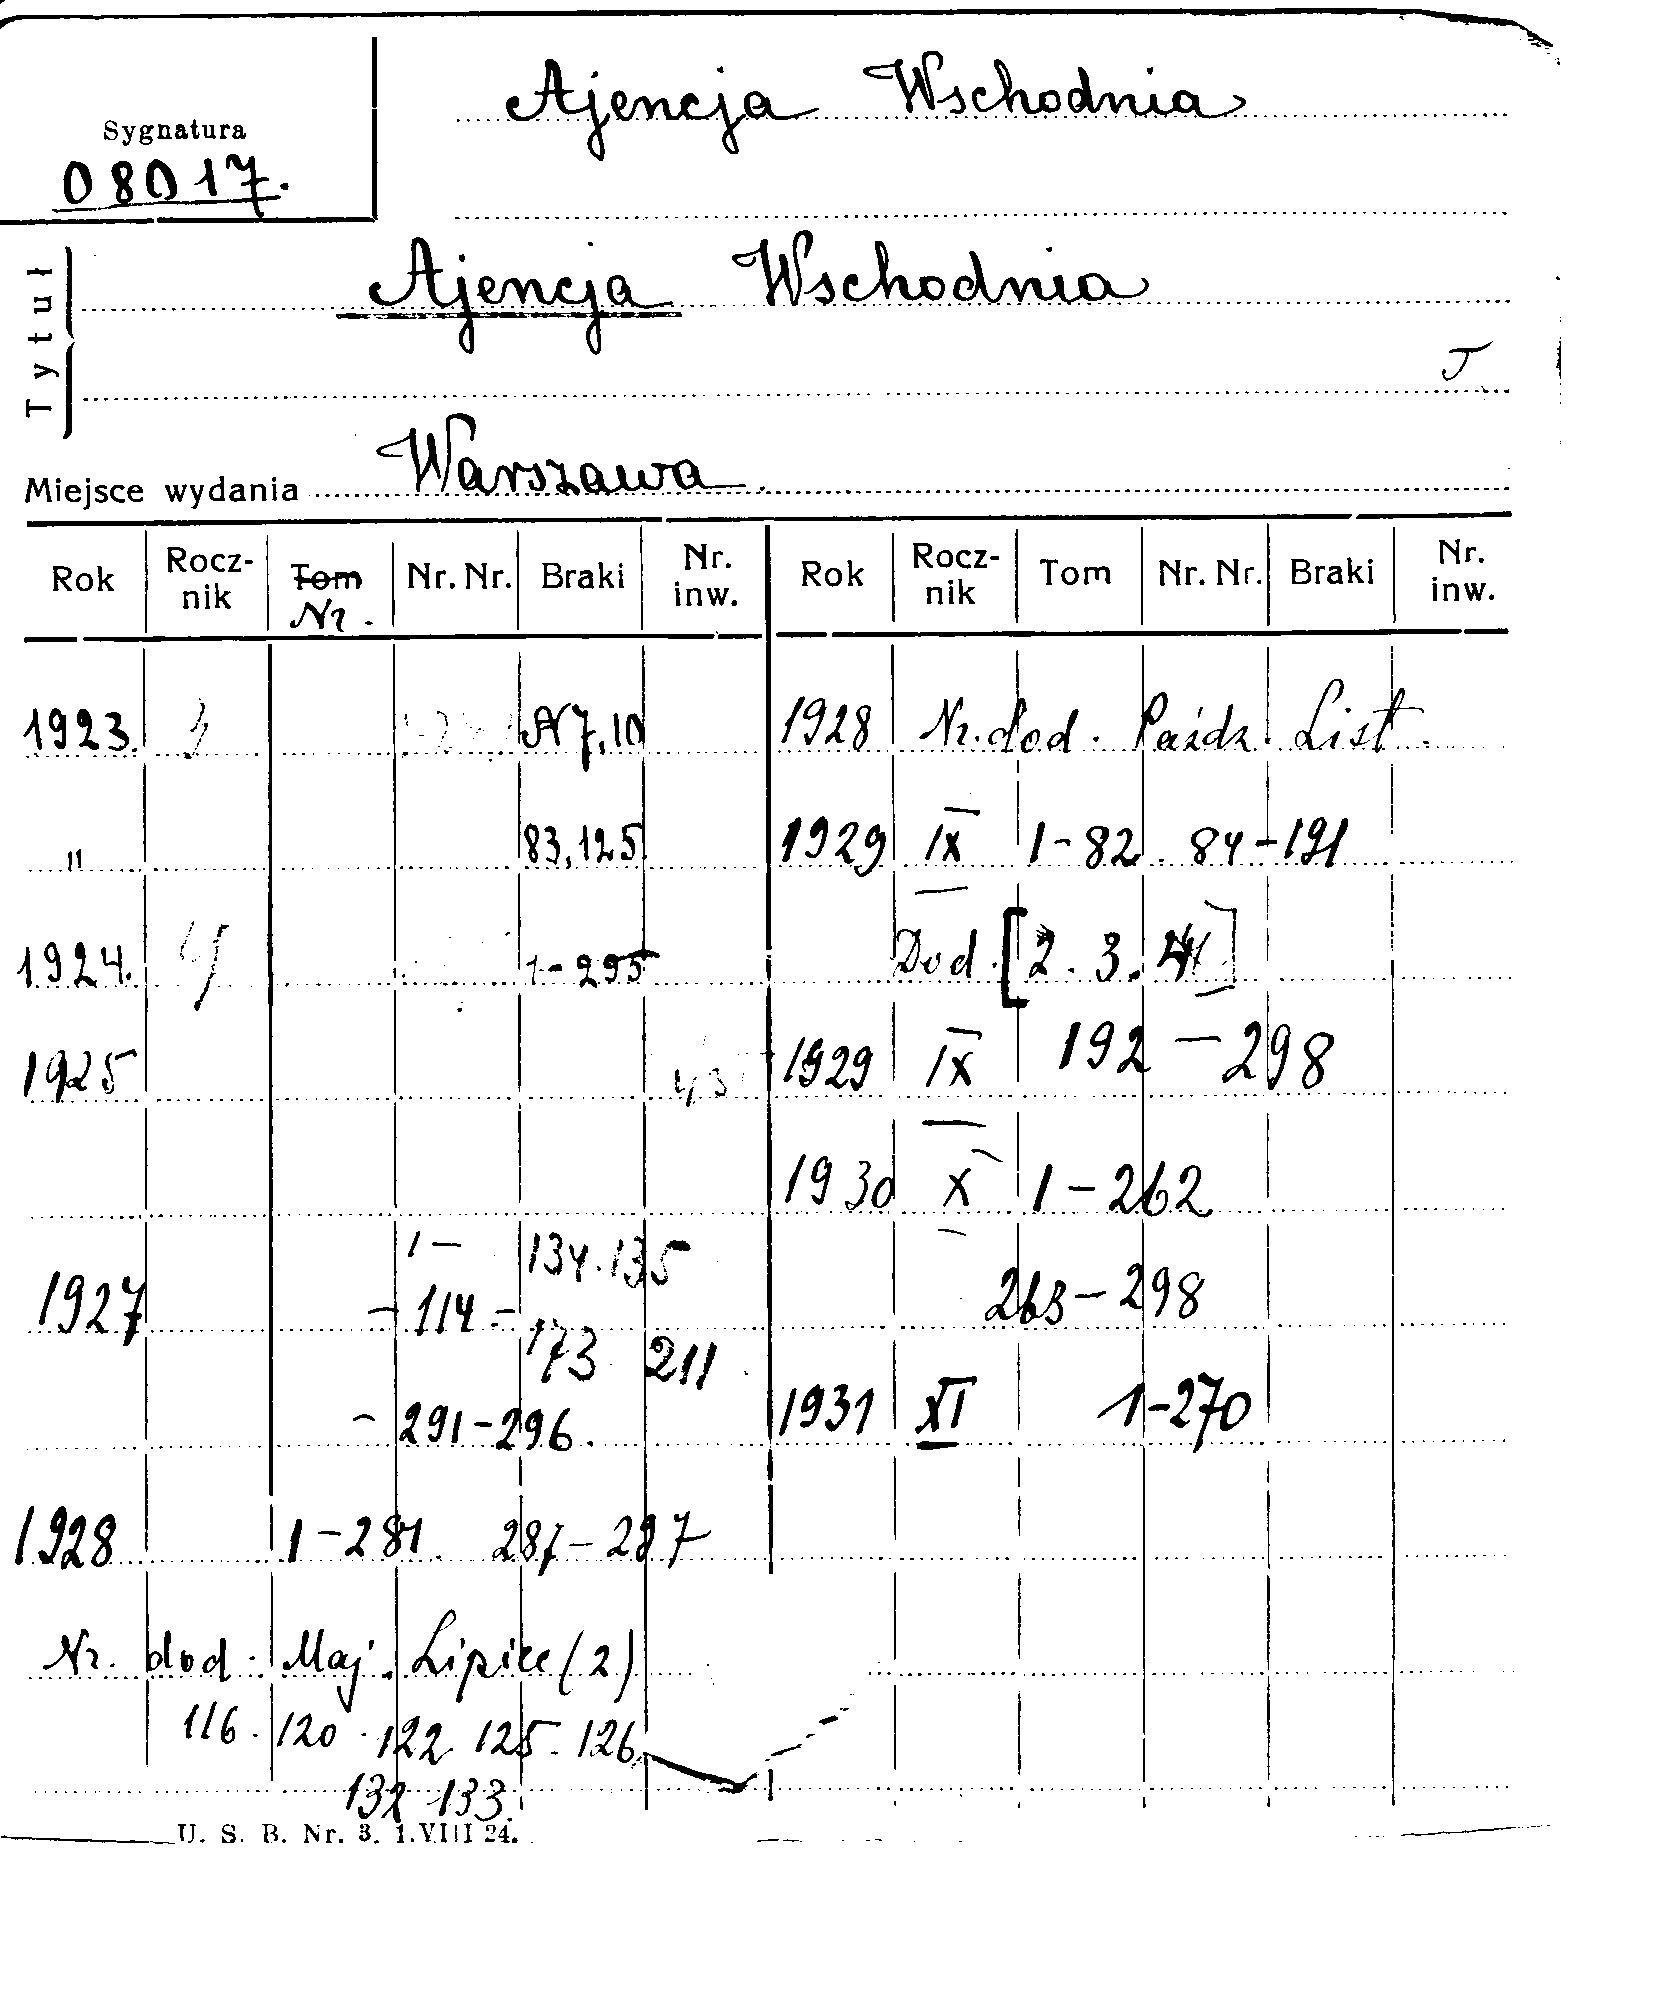 Ajencja Wschodnia
Sygnatura
08017.
Tytuł
Ajencja Wschodnia
J
Miejsce wydania Warszawa
Rok Rocz-nik Tom Nr. Nr. Nr. Braki Nr. inw. Rok Rocz-nik Tom Nr. Nr. Braki Nr. inw.
1923. 3 N 7, 10
" 83, 125
1924. 4 1-295
1925
1927 1 - 134. 135
- 114 -
173 211
- 291-296.
1928 1-281. 287-297
Nr. dod. Maj. Lipiec (2)
116. 120. 122. 125. 126.
132 133.
1928 Nr. dod. Paźdz. List.
1929 IX 1-82. 84-191
Dod. [2. 3. 4]
1929 IX 192-298
1930 X 1-262
263-298
1931 XI 1-270
U. S. B. Nr. 3. 1.VIII 24.